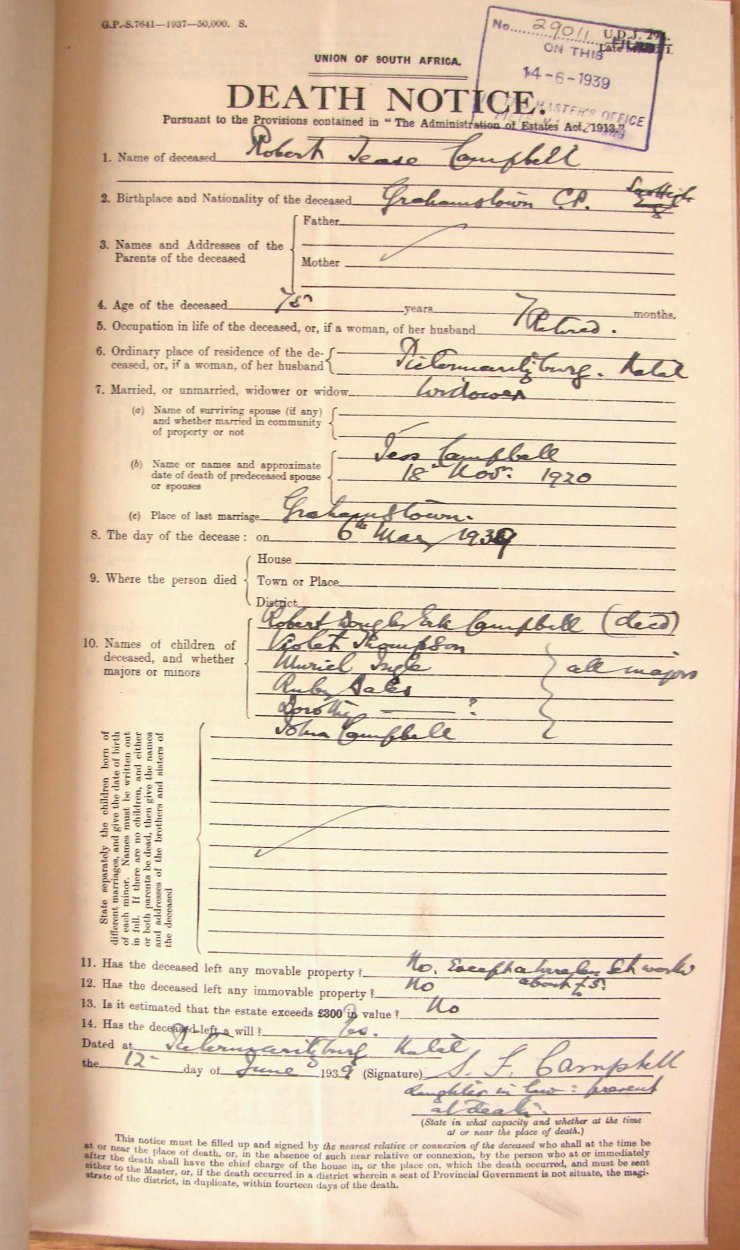 G.P.-S.7641—1937—50,000. S.
No. 29011 FILED
U.D.J. 294.
ON THIS
14-6-1939
MASTER'S OFFICE
UNION OF SOUTH AFRICA.
DEATH NOTICE.
Pursuant to the Provisions contained in "The Administration of Estates Act, 1913."
1. Name of deceased Robert Tease Campbell
2. Birthplace and Nationality of the deceased Grahamstown C.P. Scottish
3. Names and Addresses of the Parents of the deceased
Father
Mother
4. Age of the deceased 75 years 7 months.
5. Occupation in life of the deceased, or, if a woman, of her husband Retired.
6. Ordinary place of residence of the de-
ceased, or, if a woman, of her husband Pietermaritzburg. Natal
7. Married, or unmarried, widower or widow Widower
(a) Name of surviving spouse (if any)
and whether married in community
of property or not
(b) Name or names and approximate
date of death of predeceased spouse
or spouses
Jess Campbell
18th Nov. 1920
(c) Place of last marriage Grahamstown.
8. The day of the decease: on 6th May 1939
9. Where the person died
House
Town or Place
District
10. Names of children of
deceased, and whether
majors or minors
Robert Douglas Erk Campbell (decd)
Violet Thompson
Muriel Ingle
Ruby Gales
Dorothy —— ?
John Campbell
all majors
State separately the children born of
different marriages, and give the date of birth
of each minor. Names must be written out
in full. If there are no children, and either
or both parents be dead, then give the names
and addresses of the brothers and sisters of
the deceased
11. Has the deceased left any movable property? No. Except a wireless Set worth
about £5.
12. Has the deceased left any immovable property? No
13. Is it estimated that the estate exceeds £300 in value? No
14. Has the deceased left a will? Yes.
Dated at Pietermaritzburg Natal
the 12th day of June 1939 (Signature) S. F. Campbell
daughter in law: present
at death.
(State in what capacity and whether at the time
at or near the place of death.)
This notice must be filled up and signed by the nearest relative or connexion of the deceased who shall at the time be
at or near the place of death, or, in the absence of such near relative or connexion, by the person who at or immediately
after the death shall have the chief charge of the house in, or the place on, which the death occurred, and must be sent
either to the Master, or, if the death occurred in a district wherein a seat of Provincial Government is not situate, the magi-
strate of the district, in duplicate, within fourteen days of the death.